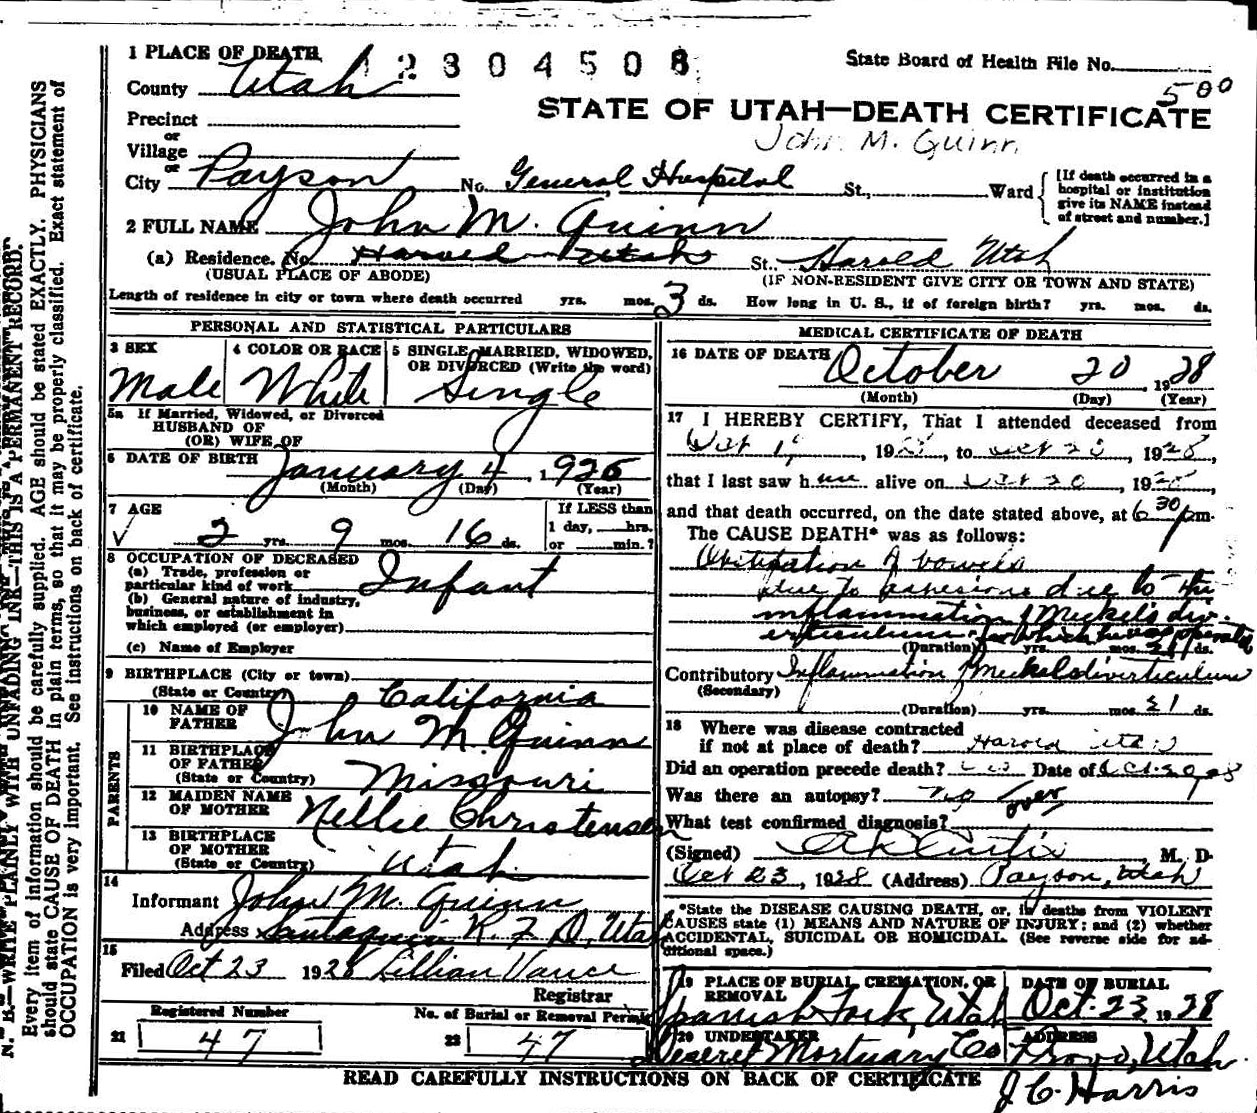 1 PLACE OF DEATH
12304508
State Board of Health File No.
County Utah
500
STATE OF UTAH—DEATH CERTIFICATE
Precinct
or
John M. Quinn
Village
or
City Payson No. General Hospital St., Ward
[If death occurred in a hospital or institution give its NAME instead of street and number.]
2 FULL NAME John M. Quinn
(a) Residence. No. Harold Utah St., Harold Utah
(USUAL PLACE OF ABODE) (IF NON-RESIDENT GIVE CITY OR TOWN AND STATE)
Length of residence in city or town where death occurred yrs. mos. 3 ds. How long in U. S., if of foreign birth? yrs. mos. ds.
PERSONAL AND STATISTICAL PARTICULARS
3 SEX Male
4 COLOR OR RACE White
5 SINGLE, MARRIED, WIDOWED, OR DIVORCED (Write the word) Single
5a If Married, Widowed, or Divorced
HUSBAND OF
(OR) WIFE OF
6 DATE OF BIRTH January 4, 1926
(Month) (Day) (Year)
7 AGE 2 yrs. 9 mos. 16 ds.
If LESS than
1 day, hrs.
or min.?
8 OCCUPATION OF DECEASED
(a) Trade, profession or particular kind of work Infant
(b) General nature of industry, business, or establishment in which employed (or employer)
(c) Name of Employer
9 BIRTHPLACE (City or town)
(State or Country) California
PARENTS
10 NAME OF FATHER John M. Quinn
11 BIRTHPLACE OF FATHER
(State or Country) Missouri
12 MAIDEN NAME OF MOTHER Nellie Christensen
13 BIRTHPLACE OF MOTHER
(State or Country) Utah
14
Informant John M. Quinn
Address Santaquin R. F. D, Utah
15
Filed Oct 23 1928 Lillian Vance
Registrar
Registered Number
No. of Burial or Removal Permit
21 47
22 47
MEDICAL CERTIFICATE OF DEATH
16 DATE OF DEATH October 20, 1928
(Month) (Day) (Year)
17 I HEREBY CERTIFY, That I attended deceased from
Oct, 19, to Oct 20, 1928,
that I last saw h alive on Oct 20, 19
and that death occurred, on the date stated above, at 6 30 pm.
The CAUSE DEATH* was as follows:
of bowels
due to adhesions due to the
inflammation of Meckel's div-
erticulum for which he was operated
(Duration) yrs. mos. ds.
Contributory Inflammation of Meckels diverticulum
(Secondary)
(Duration) yrs. mos. 21 ds.
18 Where was disease contracted
if not at place of death? Harold Utah
Did an operation precede death? Date of Oct.
Was there an autopsy? no
What test confirmed diagnosis?
(Signed) A K Curtis M. D.
Oct 23, 1928 (Address) Payson, Utah
*State the DISEASE CAUSING DEATH, or, in deaths from VIOLENT
CAUSES state (1) MEANS AND NATURE OF INJURY; and (2) whether
ACCIDENTAL, SUICIDAL OR HOMICIDAL. (See reverse side for ad-
ditional space.)
19 PLACE OF BURIAL CREMATION, OR REMOVAL Spanish Fork, Utah
DATE OF BURIAL Oct. 23, 1928
20 UNDERTAKER Deseret Mortuary Co
ADDRESS Provo, Utah
READ CAREFULLY INSTRUCTIONS ON BACK OF CERTIFICATE
J. C. Harris
N. B.—WRITE PLAINLY WITH UNFADING INK—THIS IS A PERMANENT RECORD.
Every item of information should be carefully supplied. AGE should be stated EXACTLY. PHYSICIANS
should state CAUSE OF DEATH in plain terms, so that it may be properly classified. Exact statement of
OCCUPATION is very important. See instructions on back of certificate.